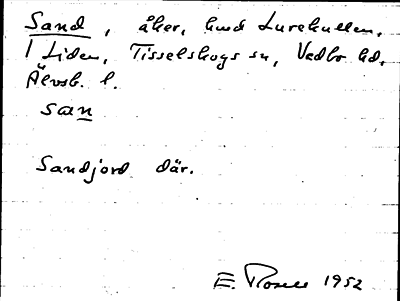 Sand, åker, hmd Lurekullen,
1 Liden, Tisselskogs sn, Vedbo hd,
Älvsb. l.
san
Sandjord där.
E. Rosell 1952